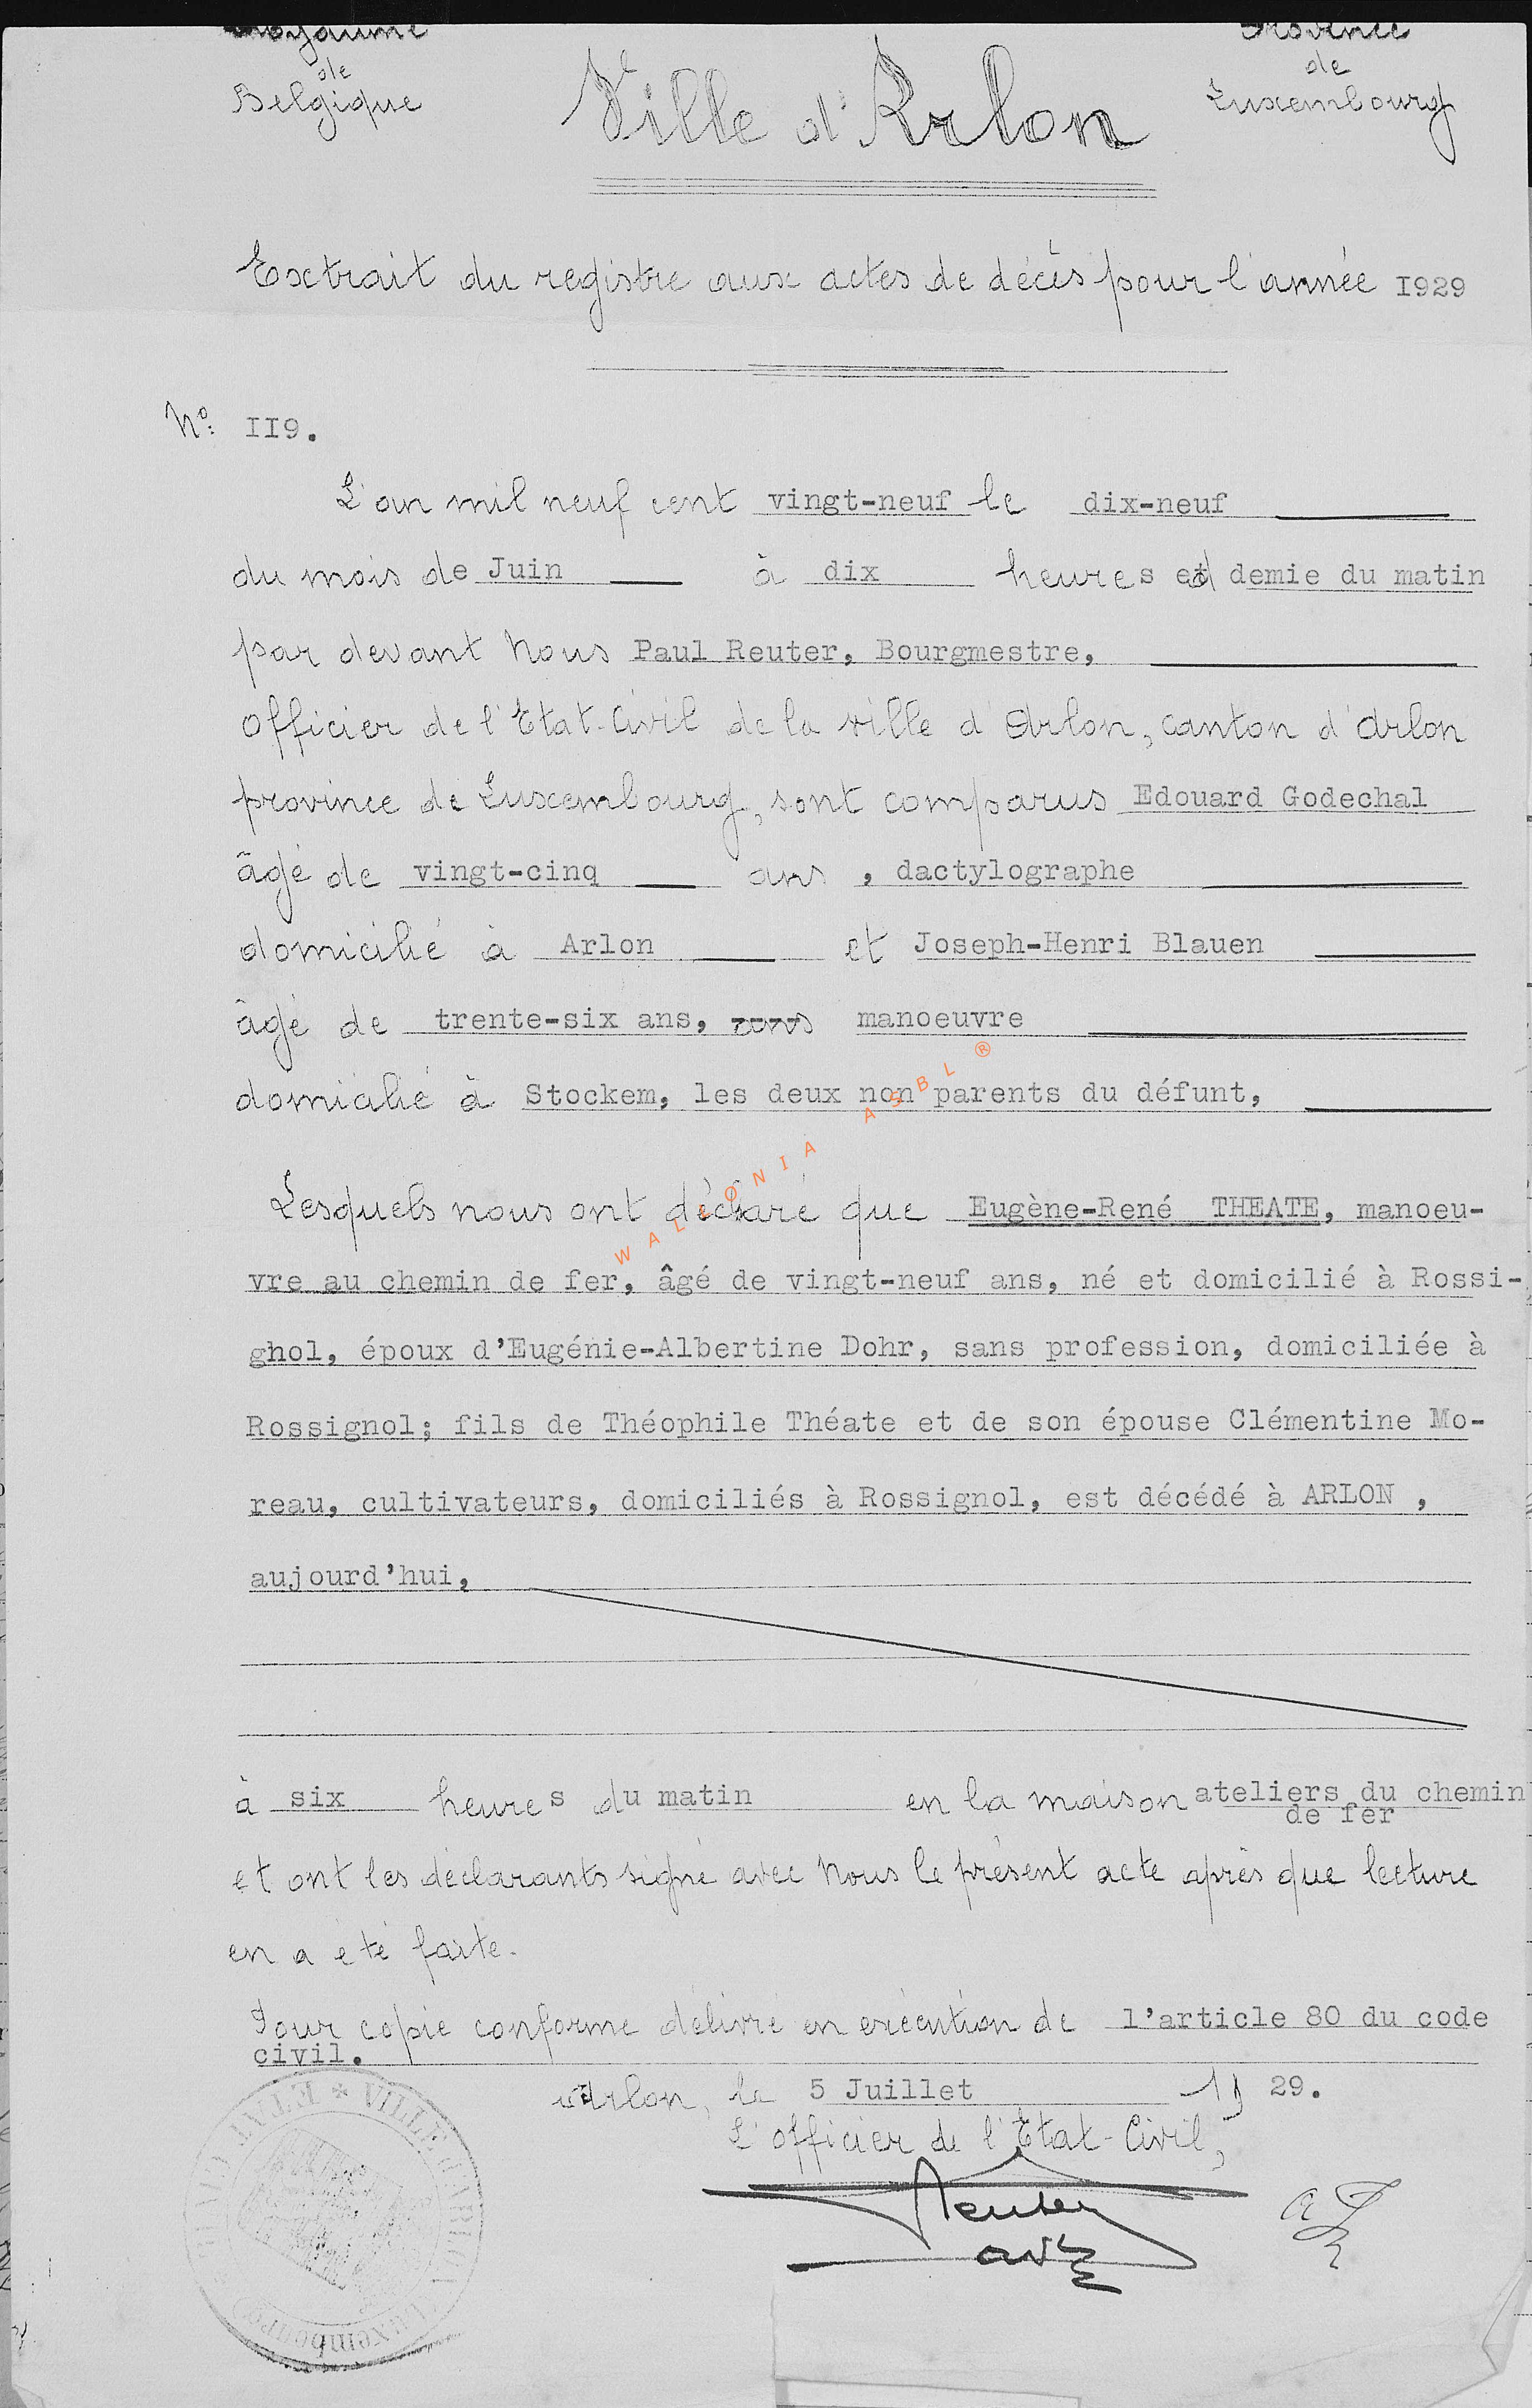 Royaume
de
Belgique
Province
de
Luxembourg
Ville d'Arlon
Extrait du registre aux actes de décès pour l'année I929
N° II9.
L'an mil neuf cent vingt-neuf le dix-neuf
du mois de Juin à dix heures et demie du matin
par devant Nous Paul Reuter, Bourgmestre,
Officier de l'Etat-Civil de la ville d'Arlon, canton d'Arlon
province de Luxembourg, sont comparus Edouard Godechal
âgé de vingt-cinq ans , dactylographe
domicilié à Arlon et Joseph-Henri Blauen
âgé de trente-six ans, ans manoeuvre
domicilié à Stockem, les deux non parents du défunt,
Lesquels nous ont déclaré que Eugène-René THEATE, manoeu-
vre au chemin de fer, âgé de vingt-neuf ans, né et domicilié à Rossi-
ghol, époux d'Eugénie-Albertine Dohr, sans profession, domiciliée à
Rossignol; fils de Théophile Théate et de son épouse Clémentine Mo-
reau, cultivateurs, domiciliés à Rossignol, est décédé à ARLON ,
aujourd'hui,
à six heures du matin en la maison ateliers du chemin
de fer
et ont les déclarants signé avec Nous le présent acte après que lecture
en a été faite.
Pour copie conforme délivré en exécution de l'article 80 du code
civil.
Arlon, le 5 Juillet 19 29.
L'officier de l'Etat-Civil,
Reuter
VILLE D'ARLON
ETAT CIVIL
Luxembourg
WALLONIA ASBL ®